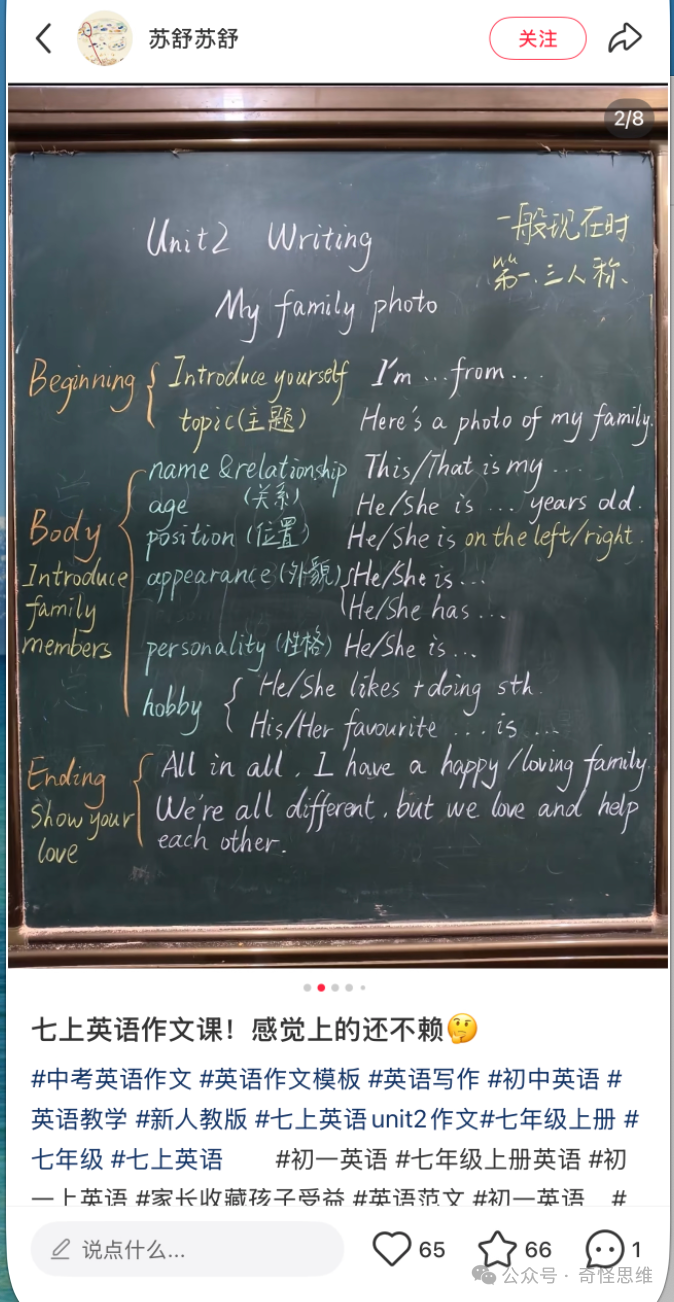 苏舒苏舒
关注
2/8
一般现在时
第一、三人称、
Unit2 Writing
My family photo
Beginning { Introduce yourself I'm ... from ...
topic(主题) Here's a photo of my family.
name & relationship This/That is my ...
(关系)
age He/She is ... years old.
Body position (位置) He/She is on the left/right.
Introduce appearance (外貌) { He/She is ...
family He/She has ...
members personality (性格) He/She is ...
hobby { He/She likes + doing sth.
His/Her favourite ... is ...
Ending { All in all, I have a happy/loving family.
Show your We're all different, but we love and help
love each other.
七上英语作文课！感觉上的还不赖🤔
#中考英语作文 #英语作文模板 #英语写作 #初中英语 #
英语教学 #新人教版 #七上英语unit2作文#七年级上册 #
七年级 #七上英语 #初一英语 #七年级上册英语 #初
一上英语 #家长收藏孩子受益 #英语范文 #初一英语 #
说点什么...
65
66
1
公众号 · 奇怪思维